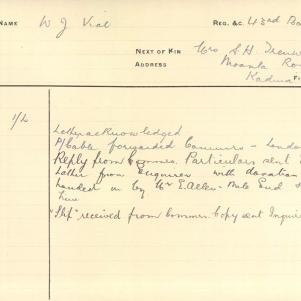 NAME W J Vial REG. &C. 43rd Ba
NEXT OF KIN Mrs S.H. 
ADDRESS Moonta Ro
Kadina F
1/2 Letter acknowledged
forwarded Commrs - London
Reply from Commrs. Particulars sent
Letter from Enquirer with donation
handed in by Mr E. Allen - Mile End
"Slip" received from Commrs. Copy sent Inquir